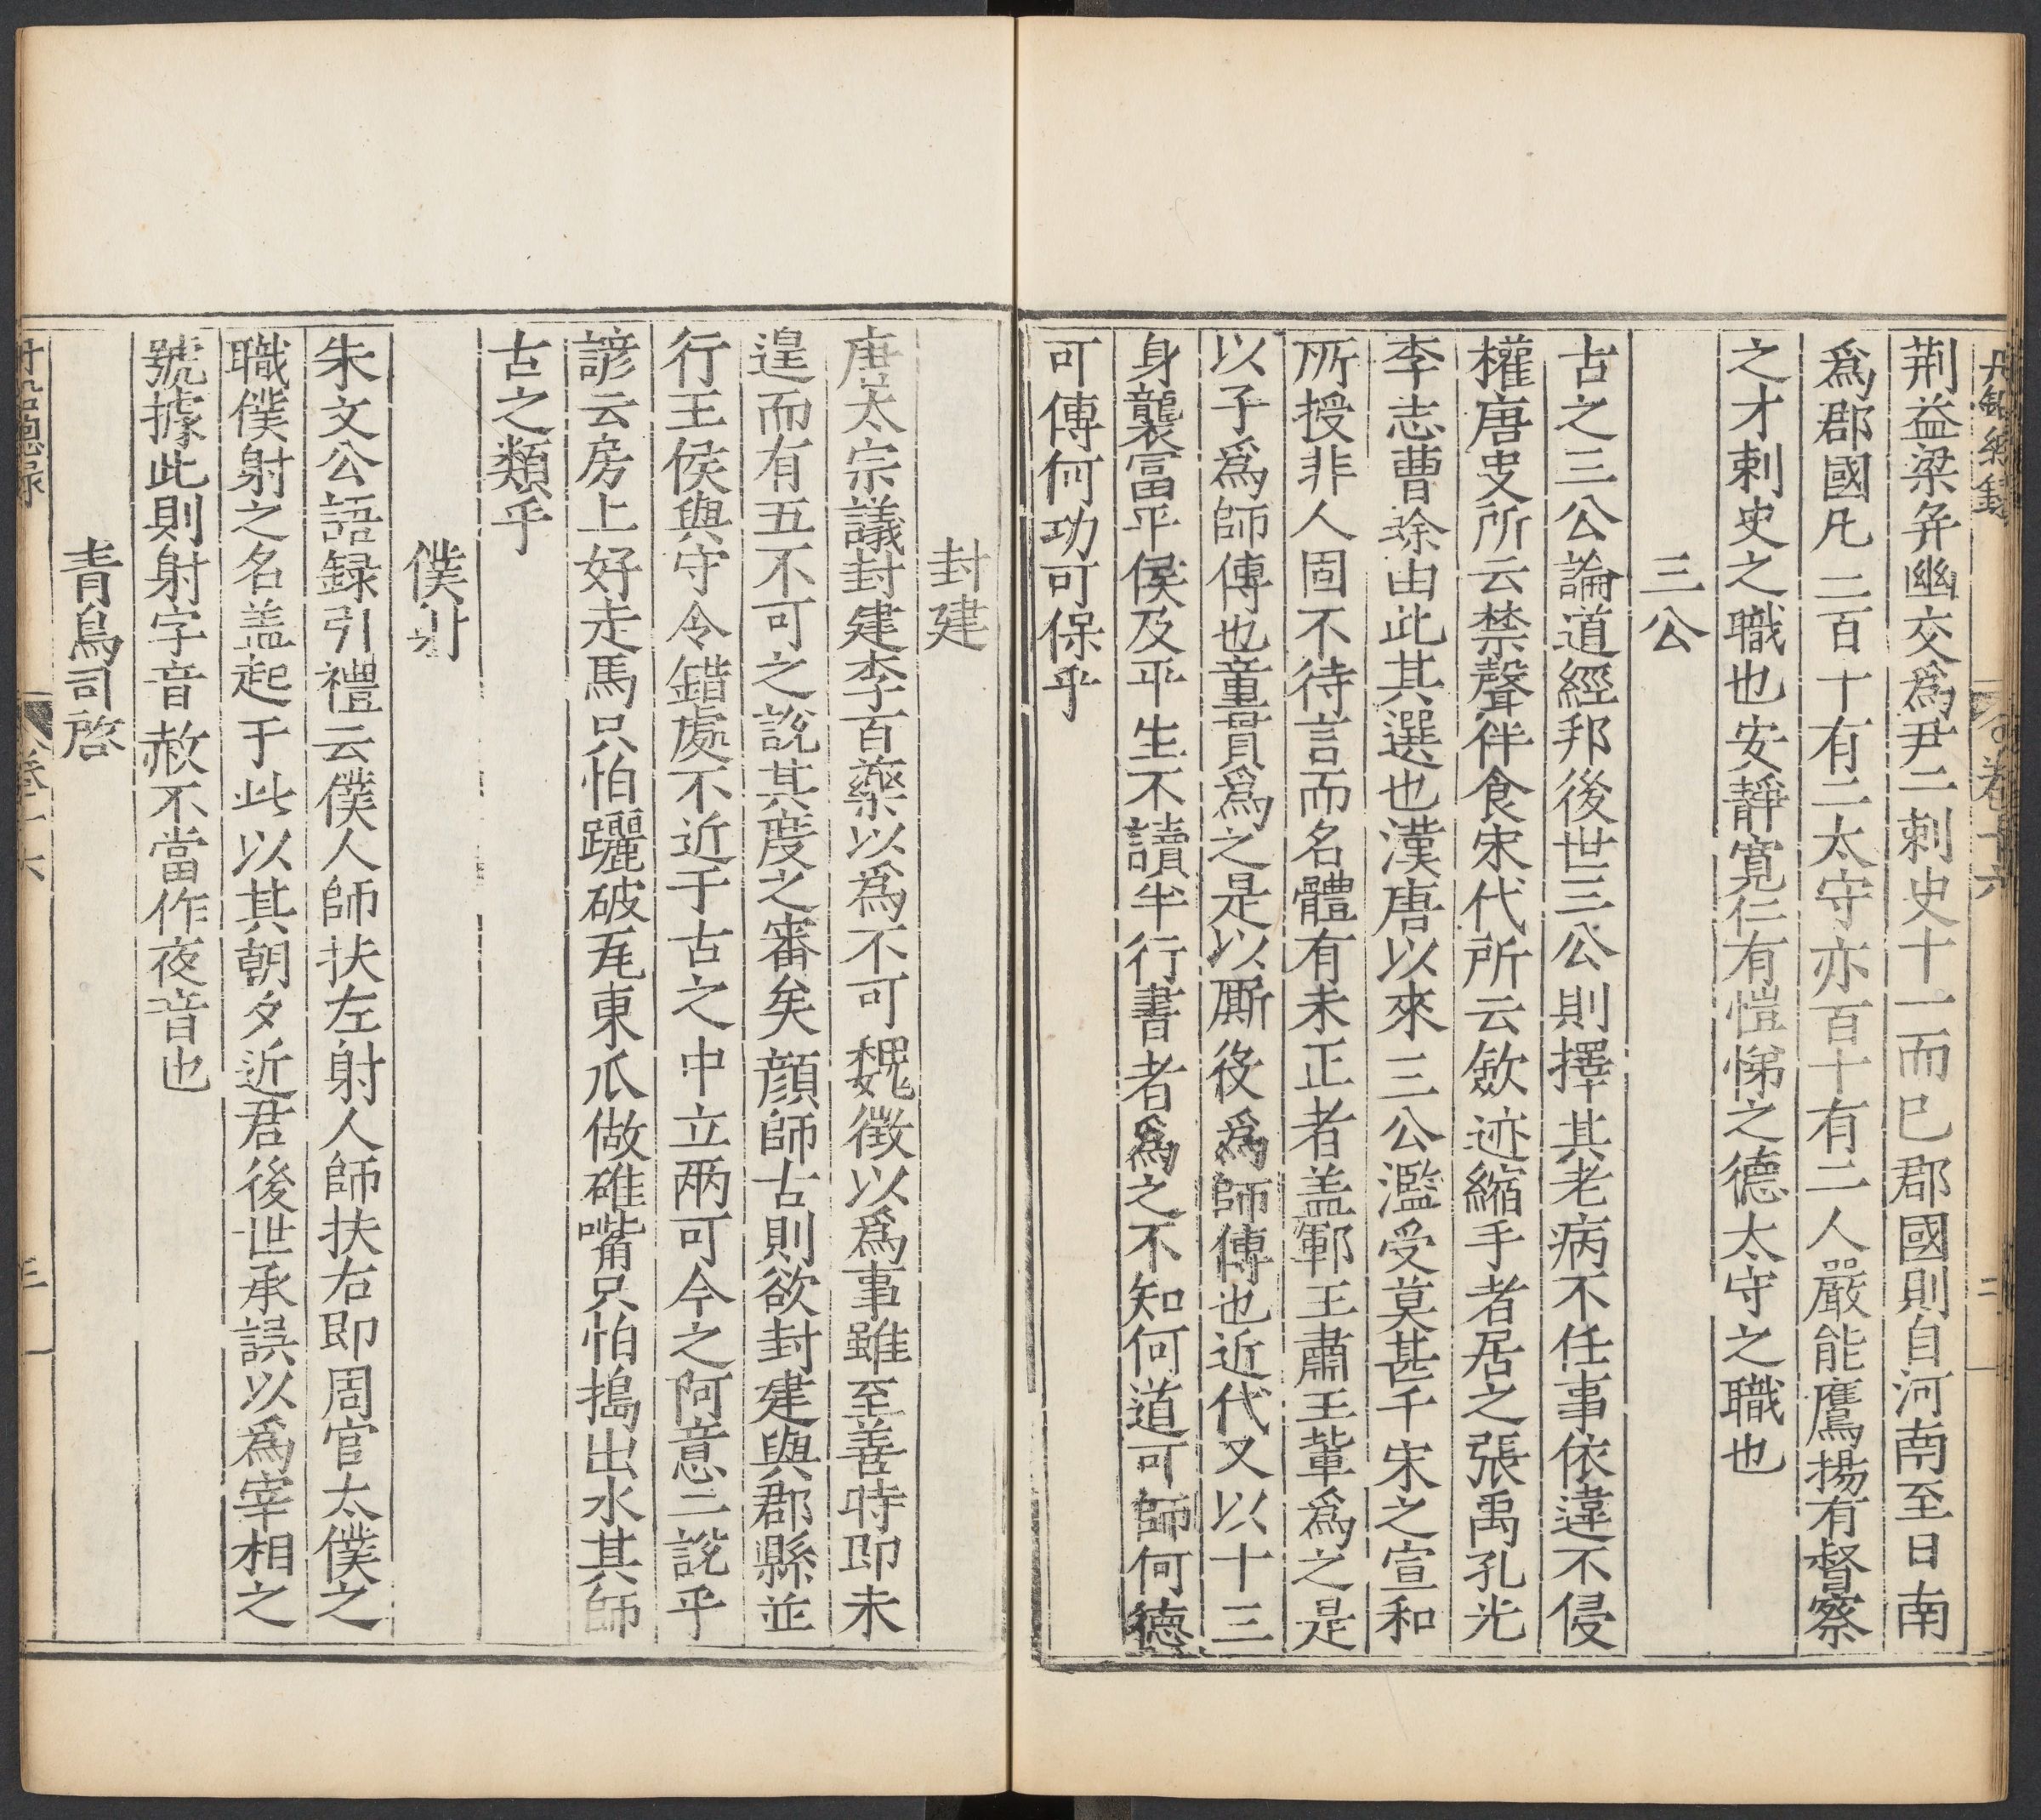 丹鉛總錄
卷十六
二
荆益梁并幽交爲尹二刺史十一而已郡國則自河南至日南
爲郡國凡二百十有二太守亦百十有二人嚴能鷹揚有督察
之才刺史之職也安靜寬仁有愷悌之德太守之職也
三公
古之三公論道經邦後世三公則擇其老病不任事依違不侵
權唐史所云禁聲伴食宋代所云斂迹縮手者居之張禹孔光
李志曹蜍由此其選也漢唐以來三公濫受莫甚千宋之宣和
所授非人固不待言而名體有未正者盖鄆王肅王輩爲之是
以子爲師傅也童貫爲之是以厮役爲師傅也近代又以十三
身襲冨平侯及平生不讀半行書者爲之不知何道可師何德
可傅何功可保乎
封建
唐太宗議封建李百藥以爲不可魏徵以爲事雖至善時即未
遑而有五不可之說其度之審矣顔師古則欲封建與郡縣並
行王侯與守令錯處不近于古之中立兩可今之阿意二說乎
諺云房上好走馬只怕躧破瓦東瓜做碓嘴只怕搗出水其師
古之類乎
僕射
朱文公語録引禮云僕人師扶左射人師扶右即周官太僕之
職僕射之名盖起于此以其朝夕近君後世承誤以爲宰相之
號據此則射字音赦不當作夜音也
青鳥司啓
丹鉛總录
卷十六
三